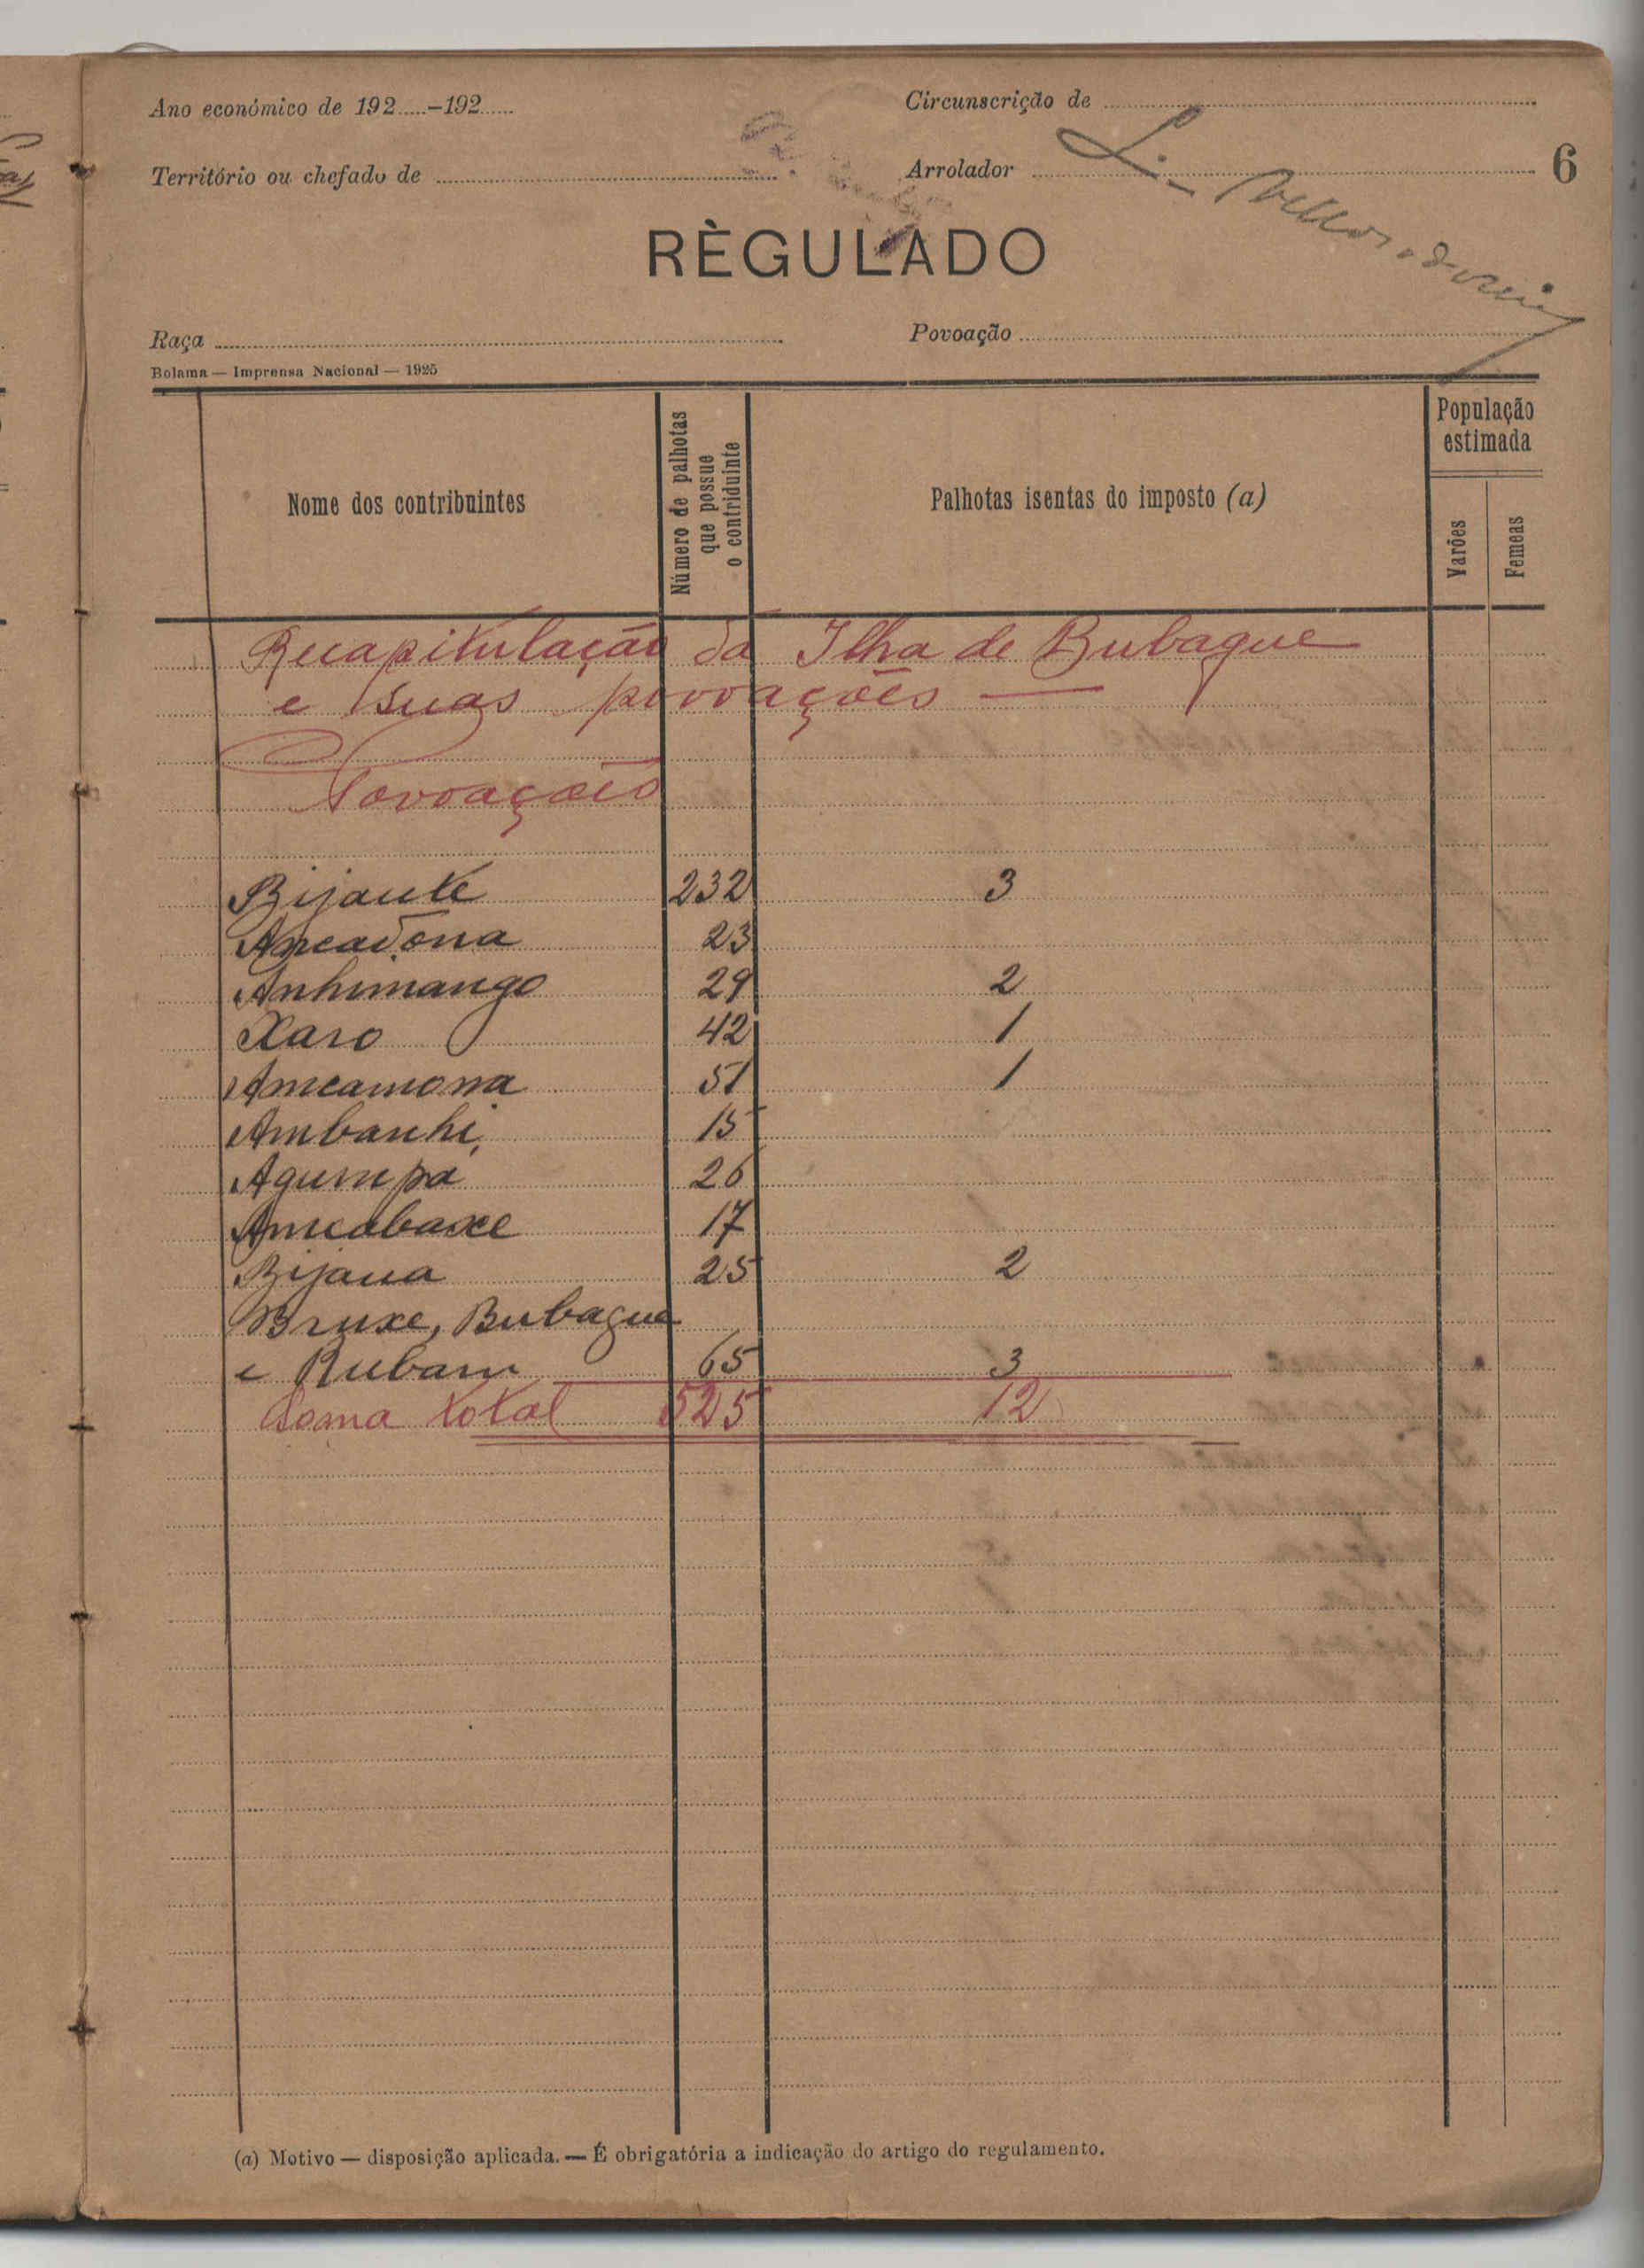 Ano económico de 192.....-192.....
Circunscrição de
Território ou chefado de
Arrolador
6
RÈGULADO
Raça
Povoação
Bolama — Imprensa Nacional — 1925
Nome dos contribuintes
Número de palhotas que possue o contriduinte
Palhotas isentas do imposto (a)
População estimada
Varões
Femeas
Recapitulação da Ilha de Bubaque
e suas povoações —
Povoações
Bijante 232 3
Ancadona 23
Anhimango 29 2
Xaro 42 1
Ancamona 51 1
Ambanhi 15
Agumpa 26
Ancabaxe 17
Bijana 25 2
Bruxe, Bubaque
e Rubam 65 3
Soma total 525 12
(a) Motivo — disposição aplicada. — É obrigatória a indicação do artigo do regulamento.